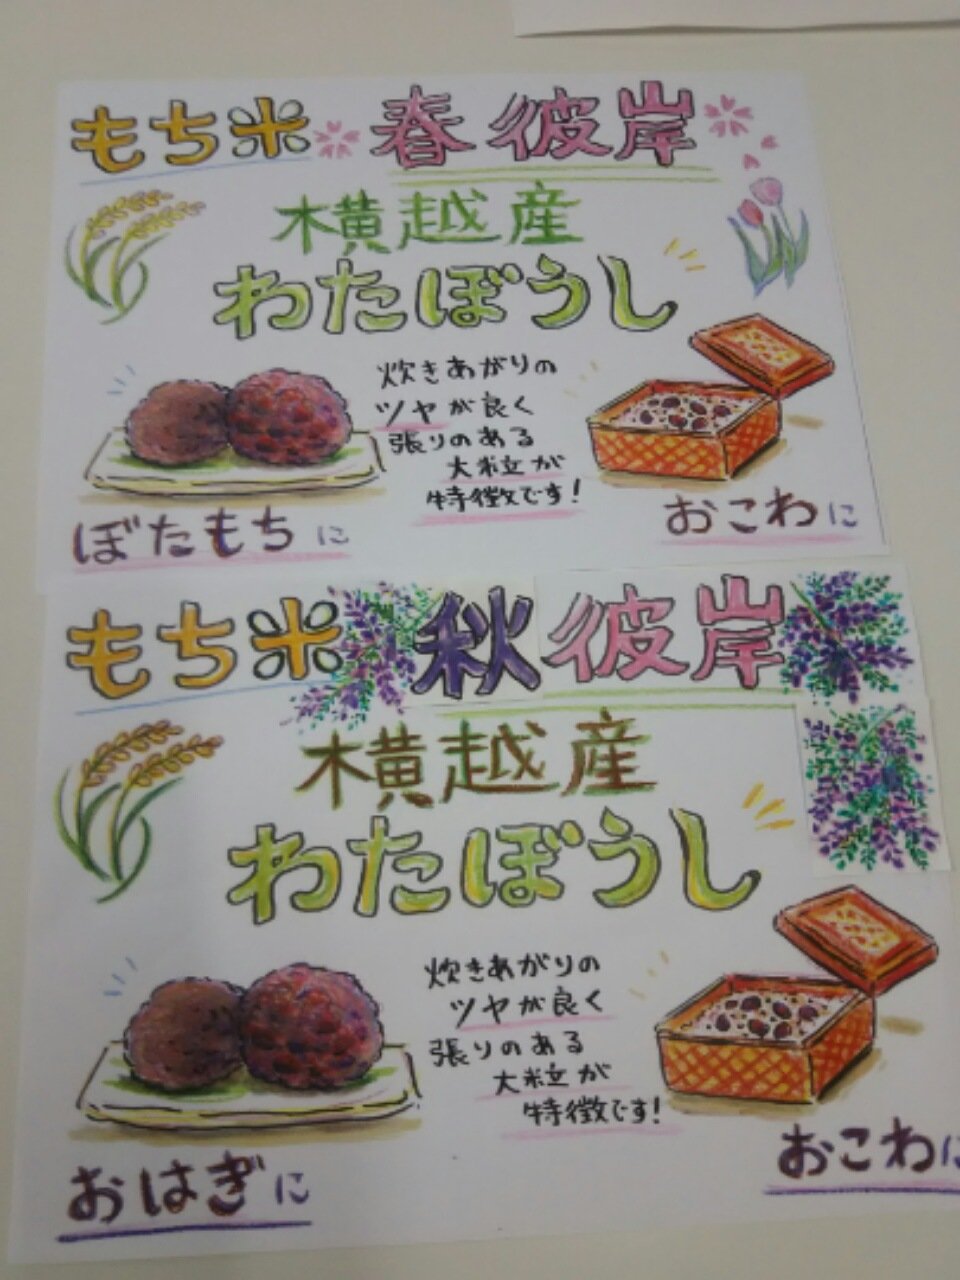 もち米 春彼岸
横越産
わたぼうし
炊きあがりの
ツヤが良く
張りのある
大粒が
特徴です!
ぼたもちに
おこわに
もち米 秋彼岸
横越産
わたぼうし
炊きあがりの
ツヤが良く
張りのある
大粒が
特徴です!
おはぎに
おこわに